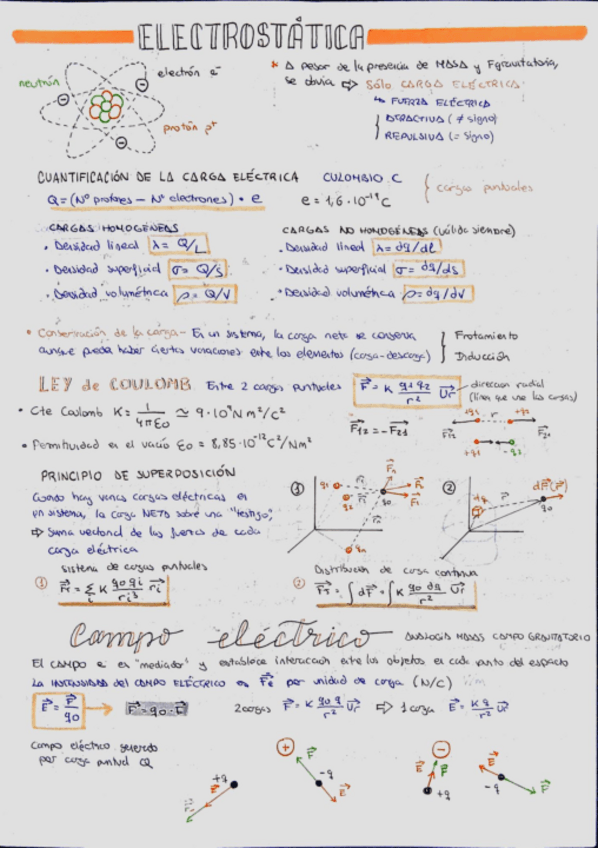 ELECTROSTÁTICA
neutrón
electrón e⁻
protón p⁺
* A pesar de la presencia de MASA y Fgravitatoria,
se obvia ⇨ Sólo CARGA ELÉCTRICA
↳ FUERZA ELÉCTRICA
ATRACTIVA (≠ signo)
REPULSIVA (= signo)
CUANTIFICACIÓN DE LA CARGA ELÉCTRICA CULOMBIO C
Q = (Nº protones − Nº electrones) · e
e = 1,6 · 10⁻¹⁹ C
cargas puntuales
CARGAS HOMOGÉNEAS
· Densidad lineal λ = Q/L
· Densidad superficial σ = Q/S
· Densidad volumétrica ρ = Q/V
CARGAS NO HOMOGÉNEAS (válida siempre)
· Densidad lineal λ = dq/dl
· Densidad superficial σ = dq/ds
· Densidad volumétrica ρ = dq/dV
· Conservación de la carga - En un sistema, la carga neta se conserva
aunque pueda haber ciertas variaciones entre los elementos (carga-descarga)
Frotamiento
Inducción
LEY de COULOMB Entre 2 cargas puntuales F = K q1·q2/r² Ur
dirección radial
(línea que une las cargas)
· Cte Coulomb K = 1/4πε0 ≃ 9·10⁹ N m²/C²
F12 = −F21
+q1 r +q2
F12 F21
+q1 -q2
· Permitividad en el vacío ε0 = 8,85·10⁻¹² C²/Nm²
PRINCIPIO DE SUPERPOSICIÓN
Cuando hay varias cargas eléctricas en
un sistema, la carga NETA sobre una "testigo",
⇨ Suma vectorial de las fuerzas de cada
carga eléctrica
① q1 q2 qn q0 Fn F1
② +q r q0 dF(r)
sistema de cargas puntuales
① FT = Σi K q0 qi/ri³ ri
Distribución de carga continua
② FT = ∫dF = ∫K q0 dq/r² Ur
Campo eléctrico
ANALOGÍA MASAS CAMPO GRAVITATORIO
El CAMPO e. es "mediador" y establece interacción entre los objetos en cada punto del espacio
La INTENSIDAD del CAMPO ELÉCTRICO es Fe por unidad de carga (N/C)
E = F/q0 → F = q0·E
2 cargas F = K q0 q/r² Ur ⇨ 1 carga E = K q/r² Ur
Campo eléctrico generado
por carga puntual Q
+q E F
+ F -q E
− E F +q
E -q F